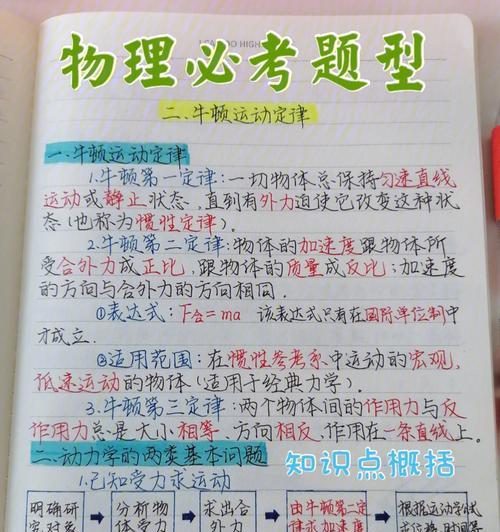 物理必考题型
二、牛顿运动定律
一、牛顿运动定律
1.牛顿第一定律:一切物体总保持匀速直线
运动或静止状态,直到有外力迫使它改变这种状
态(也称为惯性定律)。
2.牛顿第二定律:物体的加速度跟物体所
受合外力成正比,跟物体的质量成反比;加速度
的方向与合外力的方向相同.
①表达式:F合=ma 该表达式只有在国际单位制中
才成立.
②适用范围:在惯性参考系中运动的宏观,
低速运动的物体(适用于经典力学)。
3.牛顿第三定律:两个物体间的作用力与反
作用力总是大小相等,方向相反,作用在一条直线上。
二、动力学的两类基本问题
知识点概括
1.已知受力求运动
明确研 分析物 求出合 由牛顿第二定 根据运动学
究对象 体受力 外力 律求加速度